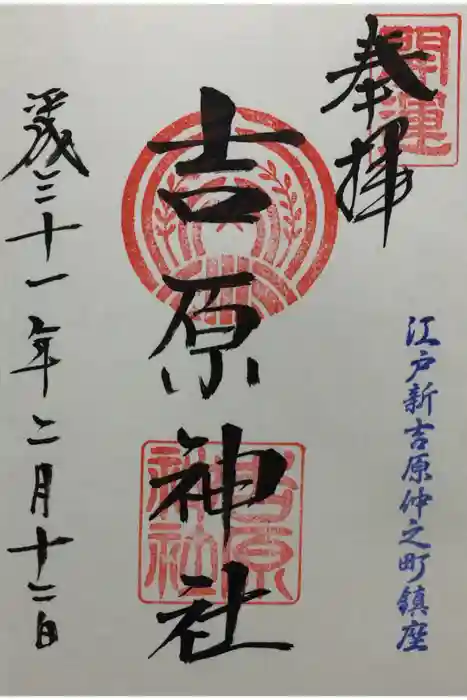 開運
奉拝
江戸新吉原仲之町鎮座
吉原神社
吉原神社
平成三十一年二月十二日